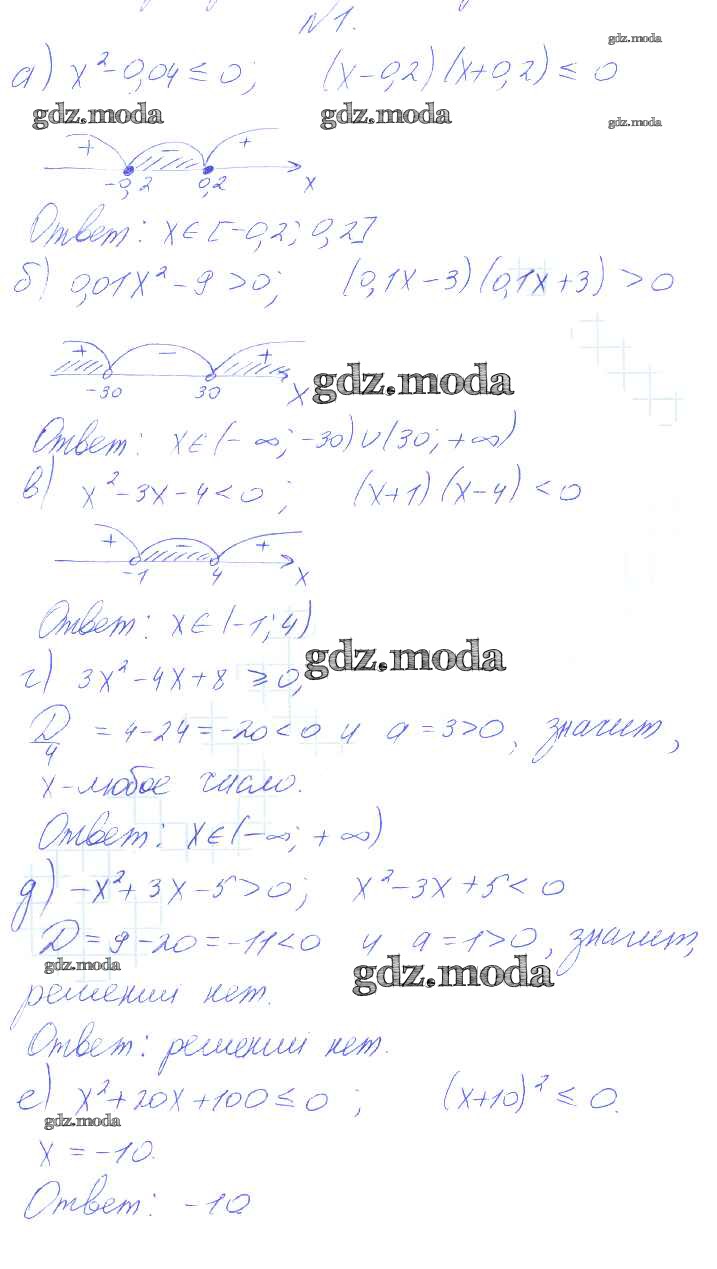 N1.
gdz.moda
а) x²-0,04≤0; (x-0,2)(x+0,2)≤0
gdz.moda gdz.moda gdz.moda
+ - +
-0,2 0,2 x
Ответ: x∈[-0,2; 0,2]
б) 0,01x²-9>0; (0,1x-3)(0,1x+3)>0
+ - +
gdz.moda
-30 30 x
Ответ: x∈(-∞; -30)∪(30; +∞)
в) x²-3x-4<0; (x+1)(x-4)<0
+ - +
-1 4 x
Ответ: x∈(-1; 4)
gdz.moda
г) 3x²-4x+8≥0;
D/4 = 4-24=-20<0 и a=3>0, значит,
x-любое число.
Ответ: x∈(-∞; +∞)
д) -x²+3x-5>0; x²-3x+5<0
D=9-20=-11<0 и a=1>0, значит,
gdz.moda gdz.moda
решений нет.
Ответ: решений нет.
е) x²+20x+100≤0; (x+10)²≤0.
gdz.moda
x=-10.
Ответ: -10